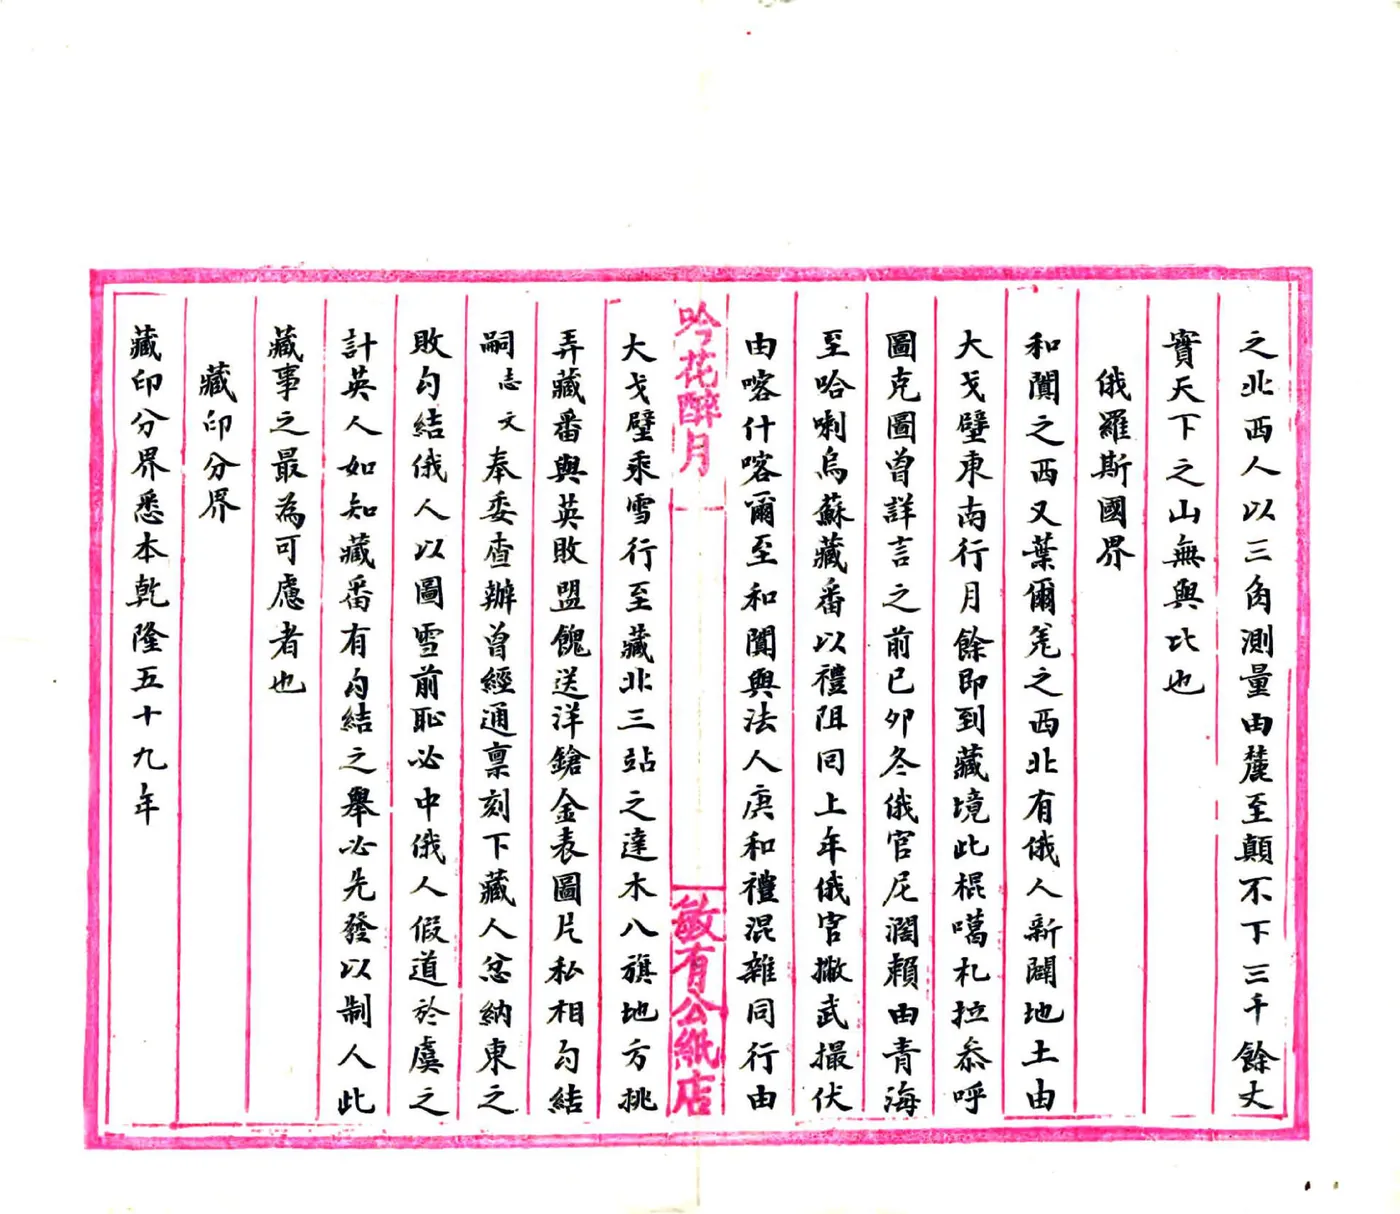 之北西人以三角測量由麓至顛不下三千餘丈
實天下之山無與比也
俄羅斯國界
和闐之西又葉爾羌之西北有俄人新闢地土由
大戈壁東南行月餘即到藏境此棍噶札拉叅呼
圖克圖曾詳言之前已卯冬俄官尼濶賴由青海
至哈喇烏蘇藏番以禮阻回上年俄官撇武撮伏
由喀什喀爾至和闐與法人庚和禮混雜同行由
吟花醉月
敏有公紙店
大戈壁乘雪行至藏北三站之達木八旗地方挑
弄藏番與英敗盟餽送洋鎗金表圖片私相勾結
嗣志文奉委查辦曾經通禀刻下藏人忿納東之
敗勾結俄人以圖雪前恥必中俄人假道於虞之
計英人如知藏番有勾結之舉必先發以制人此
藏事之最為可慮者也
藏印分界
藏印分界悉本乾隆五十九年